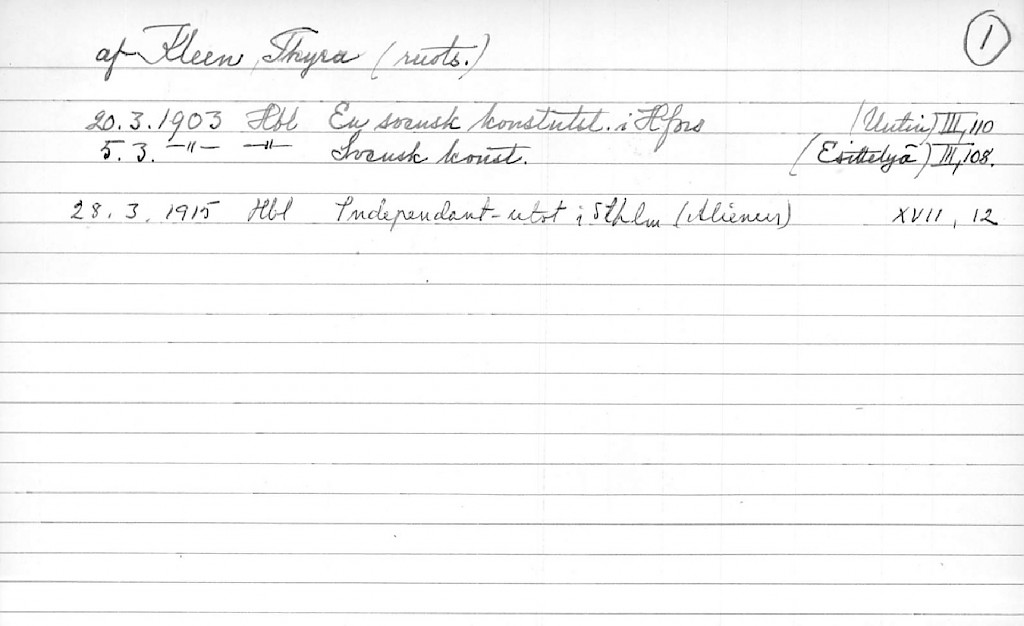 1
af Kleen, Thyra (ruots.)
20.3.1903 Hbl En svensk konstutst. i Hfors (Uutin) III, 110
5.3. –"– –"– Svensk konst. (Esittelyä) III, 108.
28.3.1915 Hbl Independant-utst i Sthlm XVII, 12